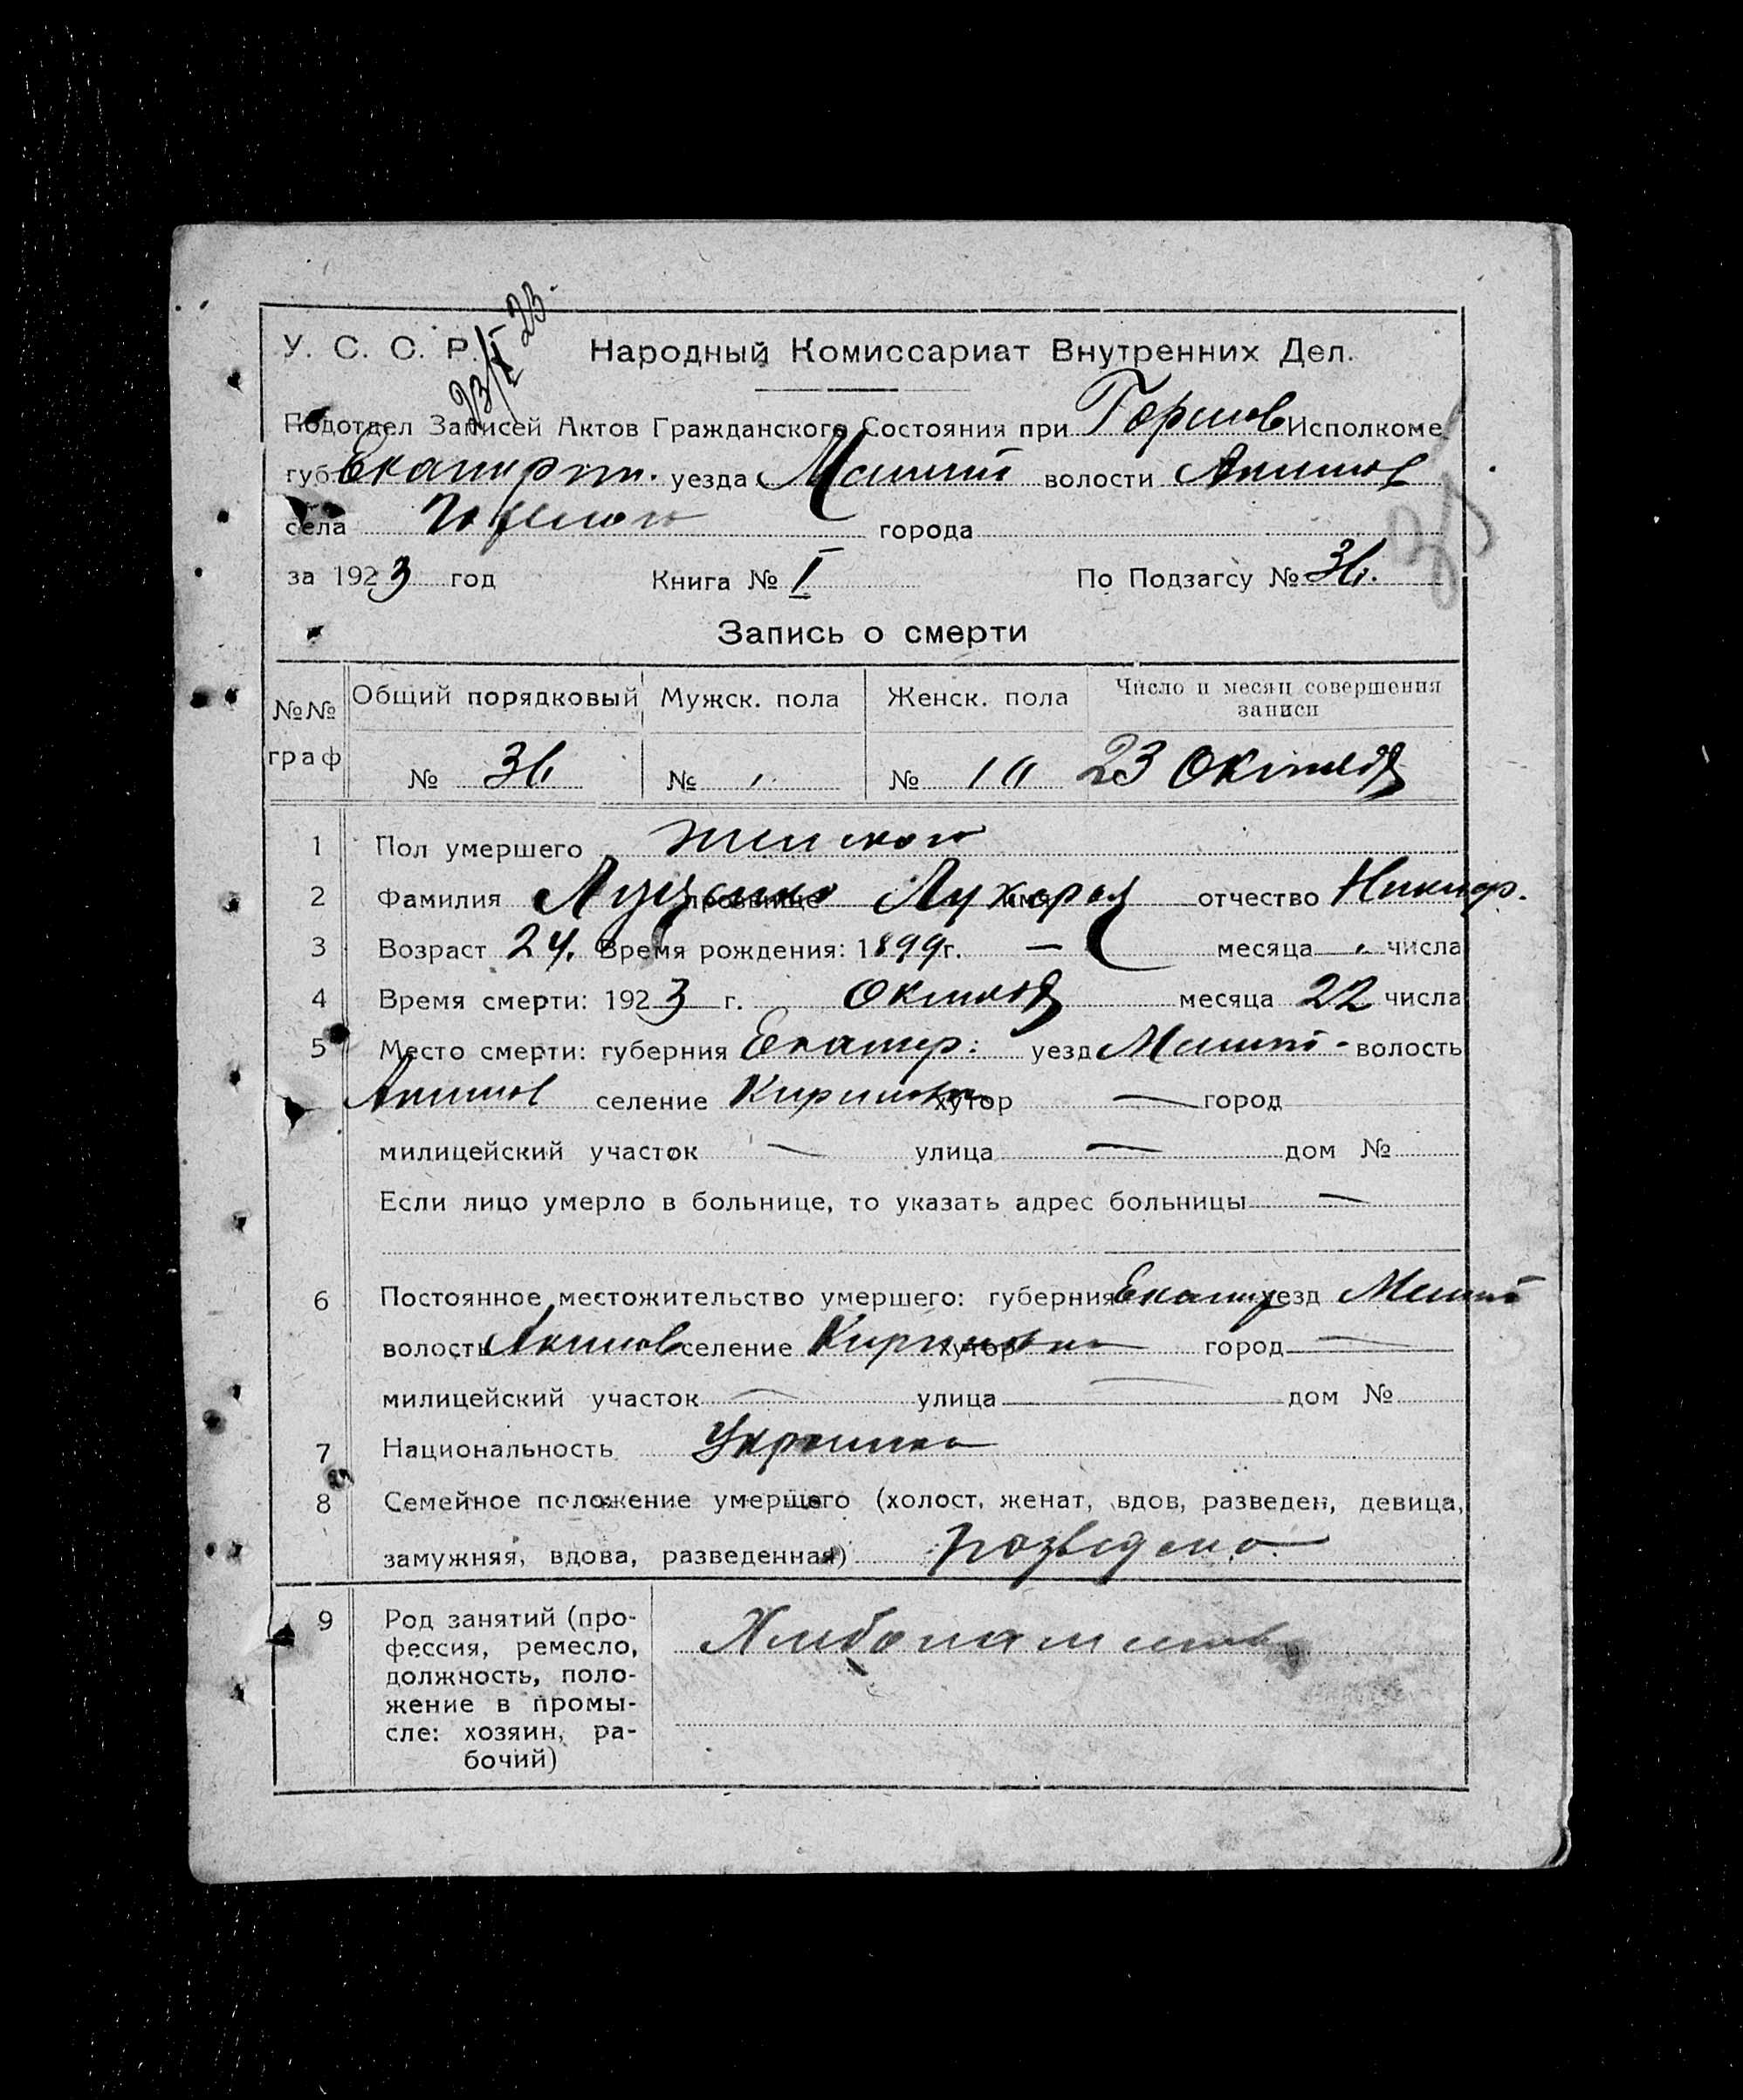 23/X 23.
У. С. С. Р. Народный Комиссариат Внутренних Дел.
Подотдел Записей Актов Гражданского Состояния при Горшов Исполкоме
губ. Екатерин. уезда волости Акимов
села города
за 1923 год Книга № I По Подзагсу № 36.
Запись о смерти
№№ граф
Общий порядковый Мужск. пола Женск. пола Число и месяц совершения
записи
№ 36 № „ № 23 Октябя
1 Пол умершего женского
2 Фамилия Луценко прозвище имя отчество Никиф.
3 Возраст 24. Время рождения: 1899 г. — месяца „ числа
4 Время смерти: 1923 г. Октяб месяца 22 числа
5 Место смерти: губерния Екатер: уезд волость
Акимов селение хутор — город
милицейский участок — улица — дом №
Если лицо умерло в больнице, то указать адрес больницы —
6 Постоянное местожительство умершего: губерния Екатер уезд
волость Акимов селение хутор город —
милицейский участок — улица — дом №
7 Национальность Украинка
8 Семейное положение умершего (холост, женат, вдов, разведен, девица,
замужняя, вдова, разведенная) розведена
9 Род занятий (про-
фессия, ремесло,
должность, поло-
жение в промы-
сле: хозяин, ра-
бочий)